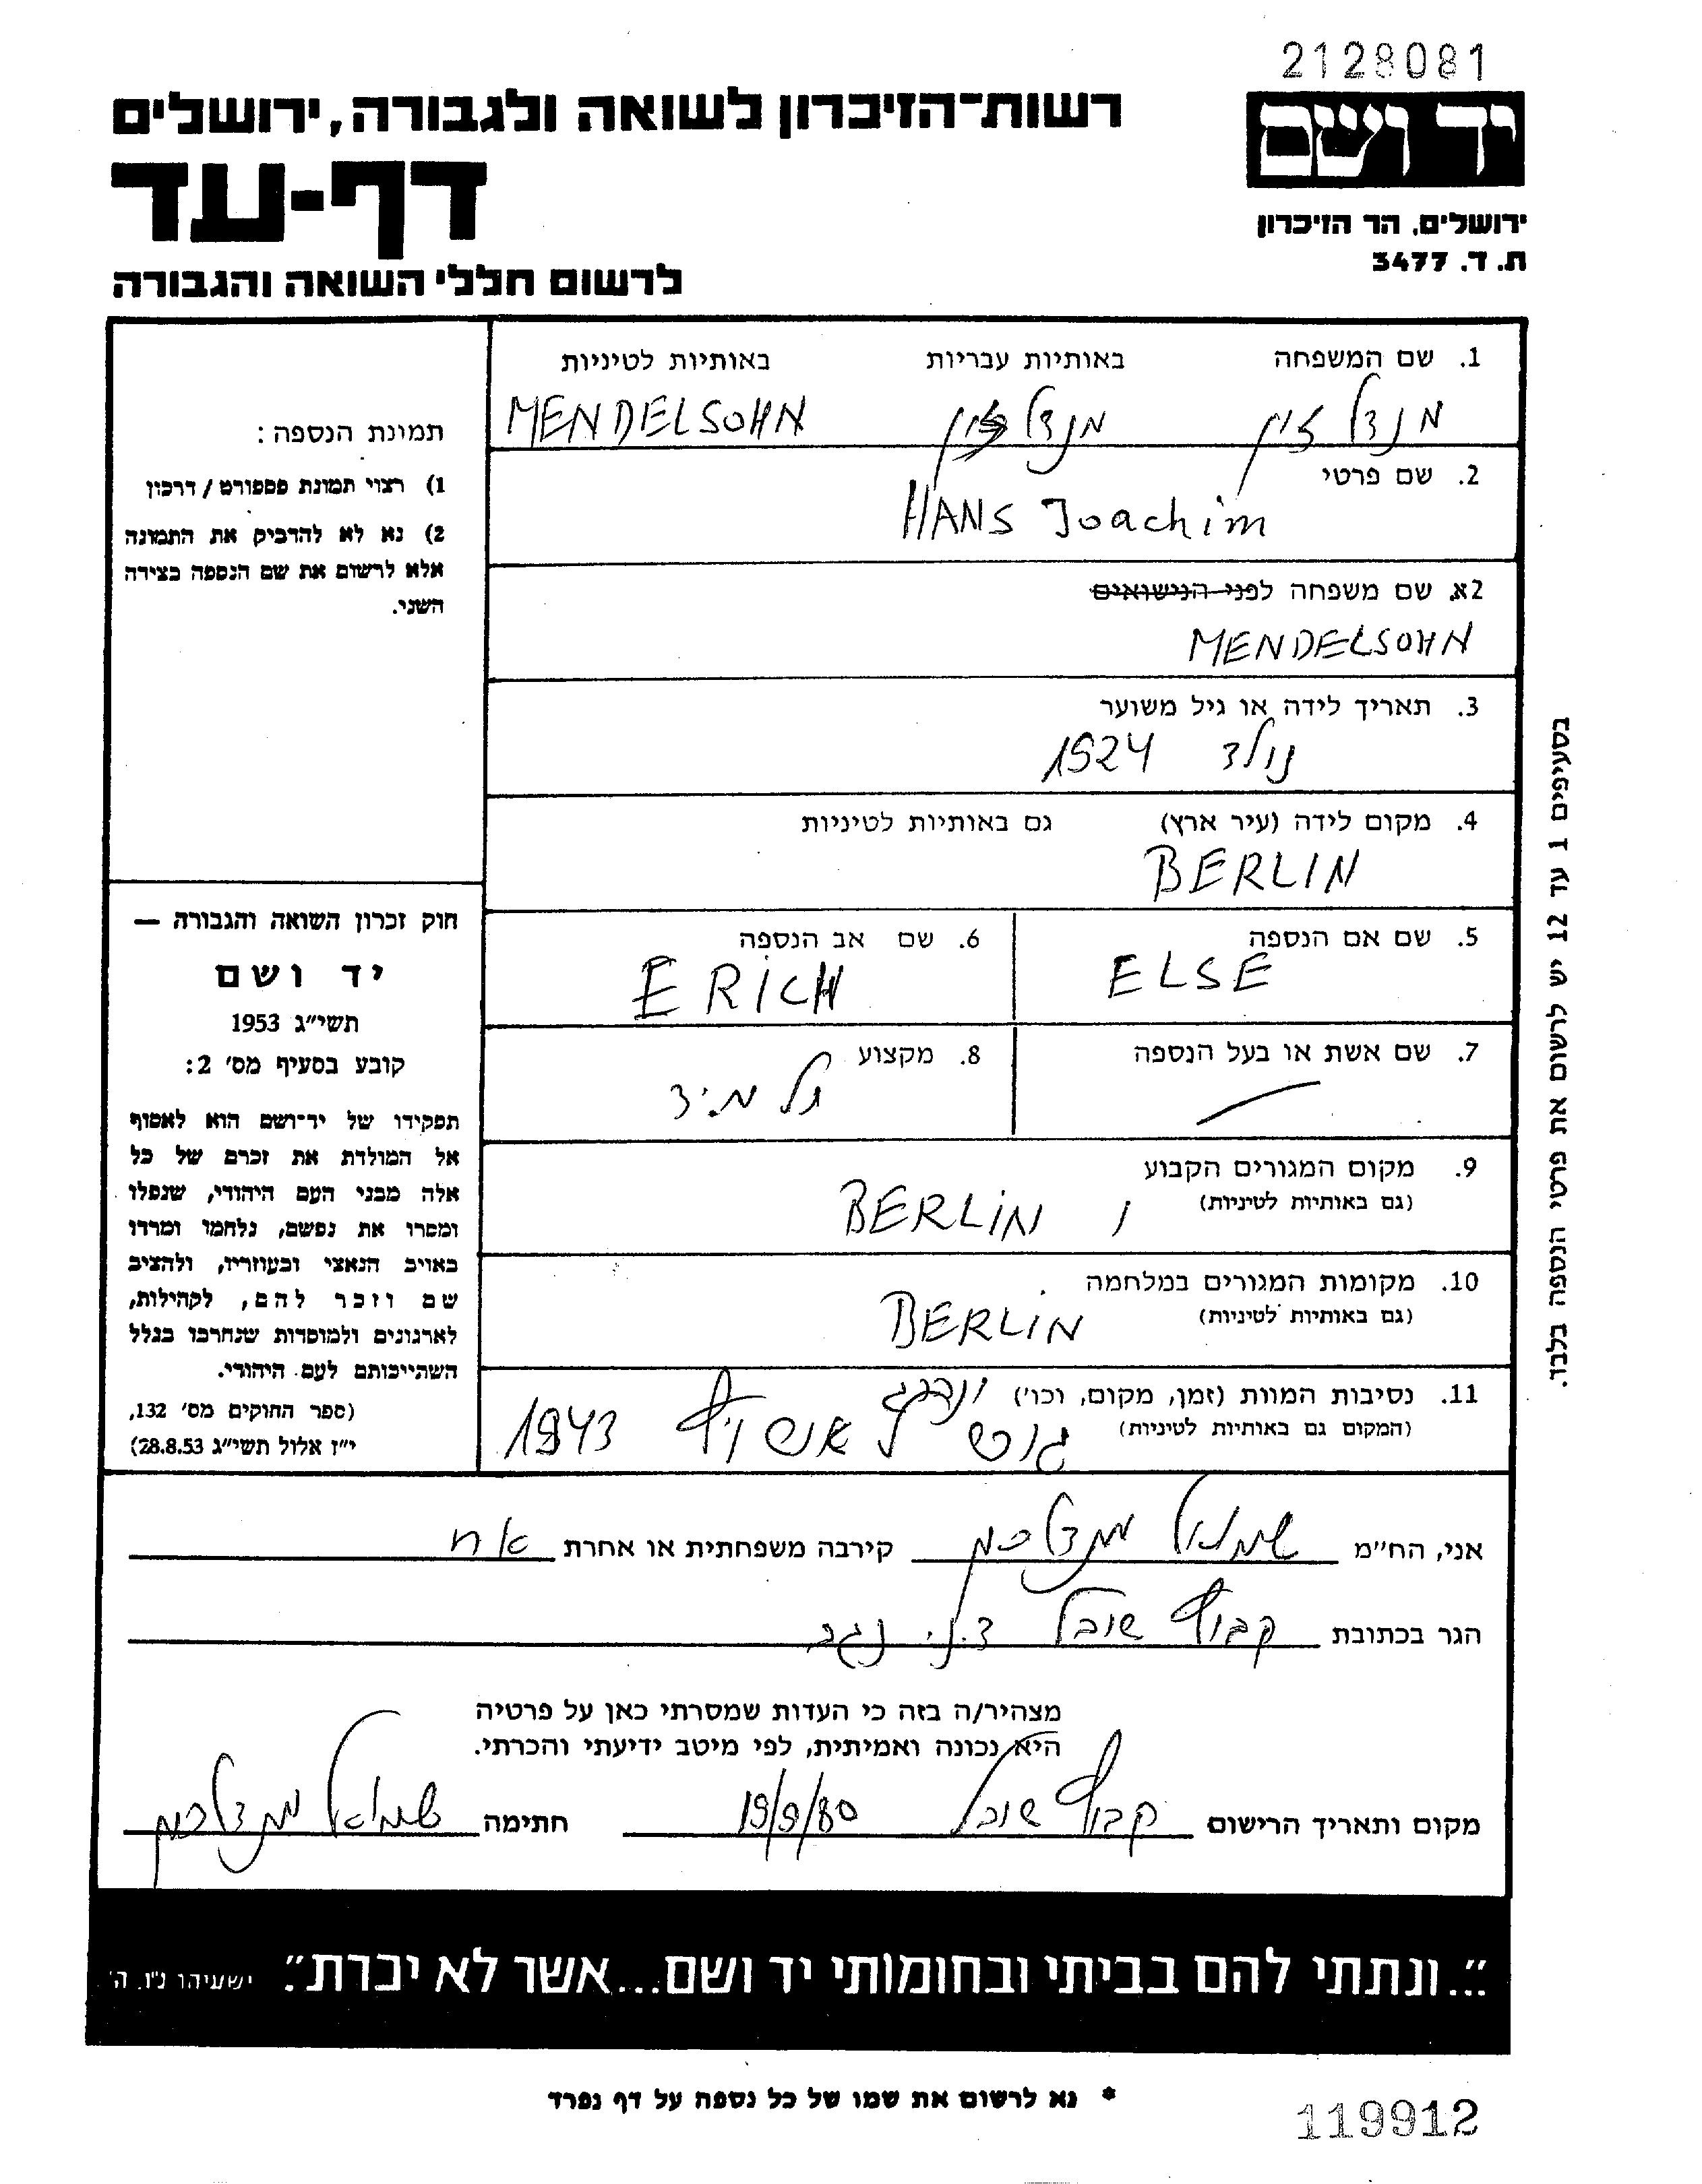 2128081
יד ושם
רשות־הזיכרון לשואה ולגבורה, ירושלים
דף-עד
ירושלים, הר הזיכרון
ת. ד. 3477
לרשום חללי השואה והגבורה
1. שם המשפחה באותיות עבריות באותיות לטיניות
MENDELSOHN
2. שם פרטי
HANS Joachim
2א. שם משפחה לפני הנישואים
MENDELSOHN
3. תאריך לידה או גיל משוער
נולד 1924
4. מקום לידה (עיר ארץ) גם באותיות לטיניות
BERLIN
5. שם אם הנספה
ELSE
6. שם אב הנספה
ERICH
7. שם אשת או בעל הנספה
8. מקצוע
תלמיד
9. מקום המגורים הקבוע
(גם באותיות לטיניות)
BERLIN
10. מקומות המגורים במלחמה
(גם באותיות לטיניות)
BERLIN
11. נסיבות המוות (זמן, מקום, וכו') ונהרג
(המקום גם באותיות לטיניות)
גורש לאושויץ 1943
תמונת הנספה:
1) רצוי תמונת פספורט / דרכון
2) נא לא להדביק את התמונה
אלא לרשום את שם הנספה בצידה
השני.
חוק זכרון השואה והגבורה —
יד ושם
תשי"ג 1953
קובע בסעיף מס' 2:
תפקידו של יד־ושם הוא לאסוף
אל המולדת את זכרם של כל
אלה מבני העם היהודי, שנפלו
ומסרו את נפשם, נלחמו ומרדו
באויב הנאצי ובעוזריו, ולהציב
שם וזכר להם, לקהילות,
לארגונים ולמוסדות שנחרבו בגלל
השתייכותם לעם היהודי.
(ספר החוקים מס' 132,
י"ז אלול תשי"ג 28.8.53)
בסעיפים 1 עד 12 יש לרשום את פרטי הנספה בלבד.
אני, הח"מ שמואל קירבה משפחתית או אחרת אח
הגר בכתובת קבוץ שובל ד.נ. נגב
מצהיר/ה בזה כי העדות שמסרתי כאן על פרטיה
היא נכונה ואמיתית, לפי מיטב ידיעתי והכרתי.
מקום ותאריך הרישום קבוץ שובל 19/9/80 חתימה שמואל
"...ונתתי להם בביתי ובחומותי יד ושם...אשר לא יכרת". ישעיהו נ"ו, ה'
* נא לרשום את שמו של כל נספה על דף נפרד
119912